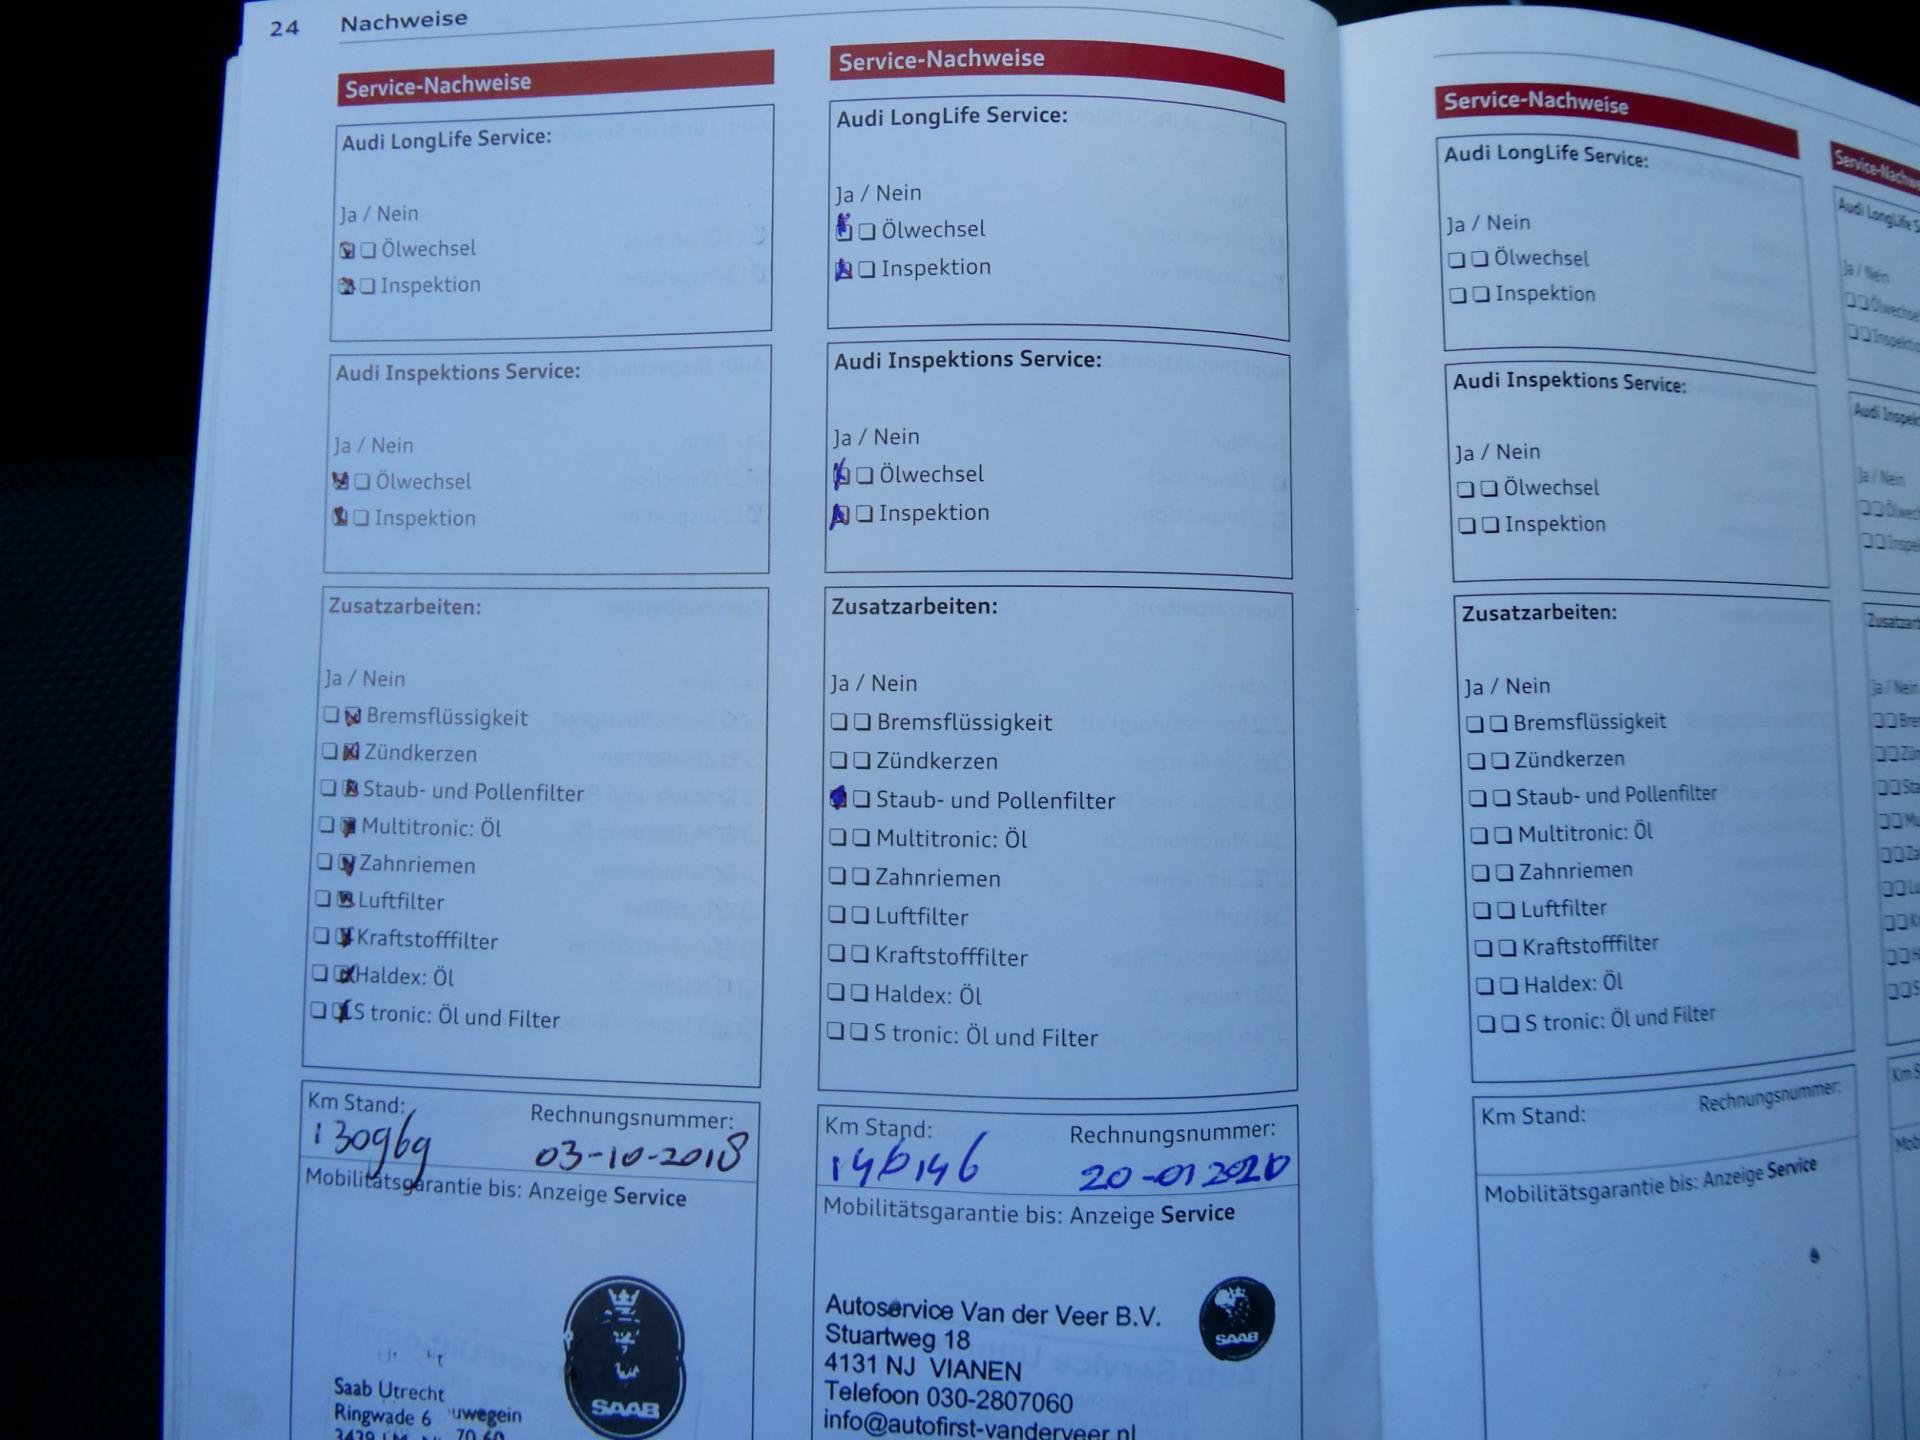 24 Nachweise
Service-Nachweise
Audi LongLife Service:
Ja / Nein
Ölwechsel
Inspektion
Audi Inspektions Service:
Ja / Nein
Ölwechsel
Inspektion
Zusatzarbeiten:
Ja / Nein
Bremsflüssigkeit
Zündkerzen
Staub- und Pollenfilter
Multitronic: Öl
Zahnriemen
Luftfilter
Kraftstofffilter
Haldex: Öl
S tronic: Öl und Filter
Km Stand: Rechnungsnummer:
130969 03-10-2018
Mobilitätsgarantie bis: Anzeige Service
SAAB
Saab Utrecht
Ringwade 6 uwegein
70 60
Service-Nachweise
Audi LongLife Service:
Ja / Nein
Ölwechsel
Inspektion
Audi Inspektions Service:
Ja / Nein
Ölwechsel
Inspektion
Zusatzarbeiten:
Ja / Nein
Bremsflüssigkeit
Zündkerzen
Staub- und Pollenfilter
Multitronic: Öl
Zahnriemen
Luftfilter
Kraftstofffilter
Haldex: Öl
S tronic: Öl und Filter
Km Stand: Rechnungsnummer:
146146 20-01 2020
Mobilitätsgarantie bis: Anzeige Service
Autoservice Van der Veer B.V.
Stuartweg 18
4131 NJ VIANEN
Telefoon 030-2807060
info@autofirst-vanderveer.nl
SAAB
Service-Nachweise
Audi LongLife Service:
Ja / Nein
Ölwechsel
Inspektion
Audi Inspektions Service:
Ja / Nein
Ölwechsel
Inspektion
Zusatzarbeiten:
Ja / Nein
Bremsflüssigkeit
Zündkerzen
Staub- und Pollenfilter
Multitronic: Öl
Zahnriemen
Luftfilter
Kraftstofffilter
Haldex: Öl
S tronic: Öl und Filter
Km Stand: Rechnungsnummer:
Mobilitätsgarantie bis: Anzeige Service
Audi LongLife
Ja / Nein
Audi
Ja / Nein
Ja / Nein